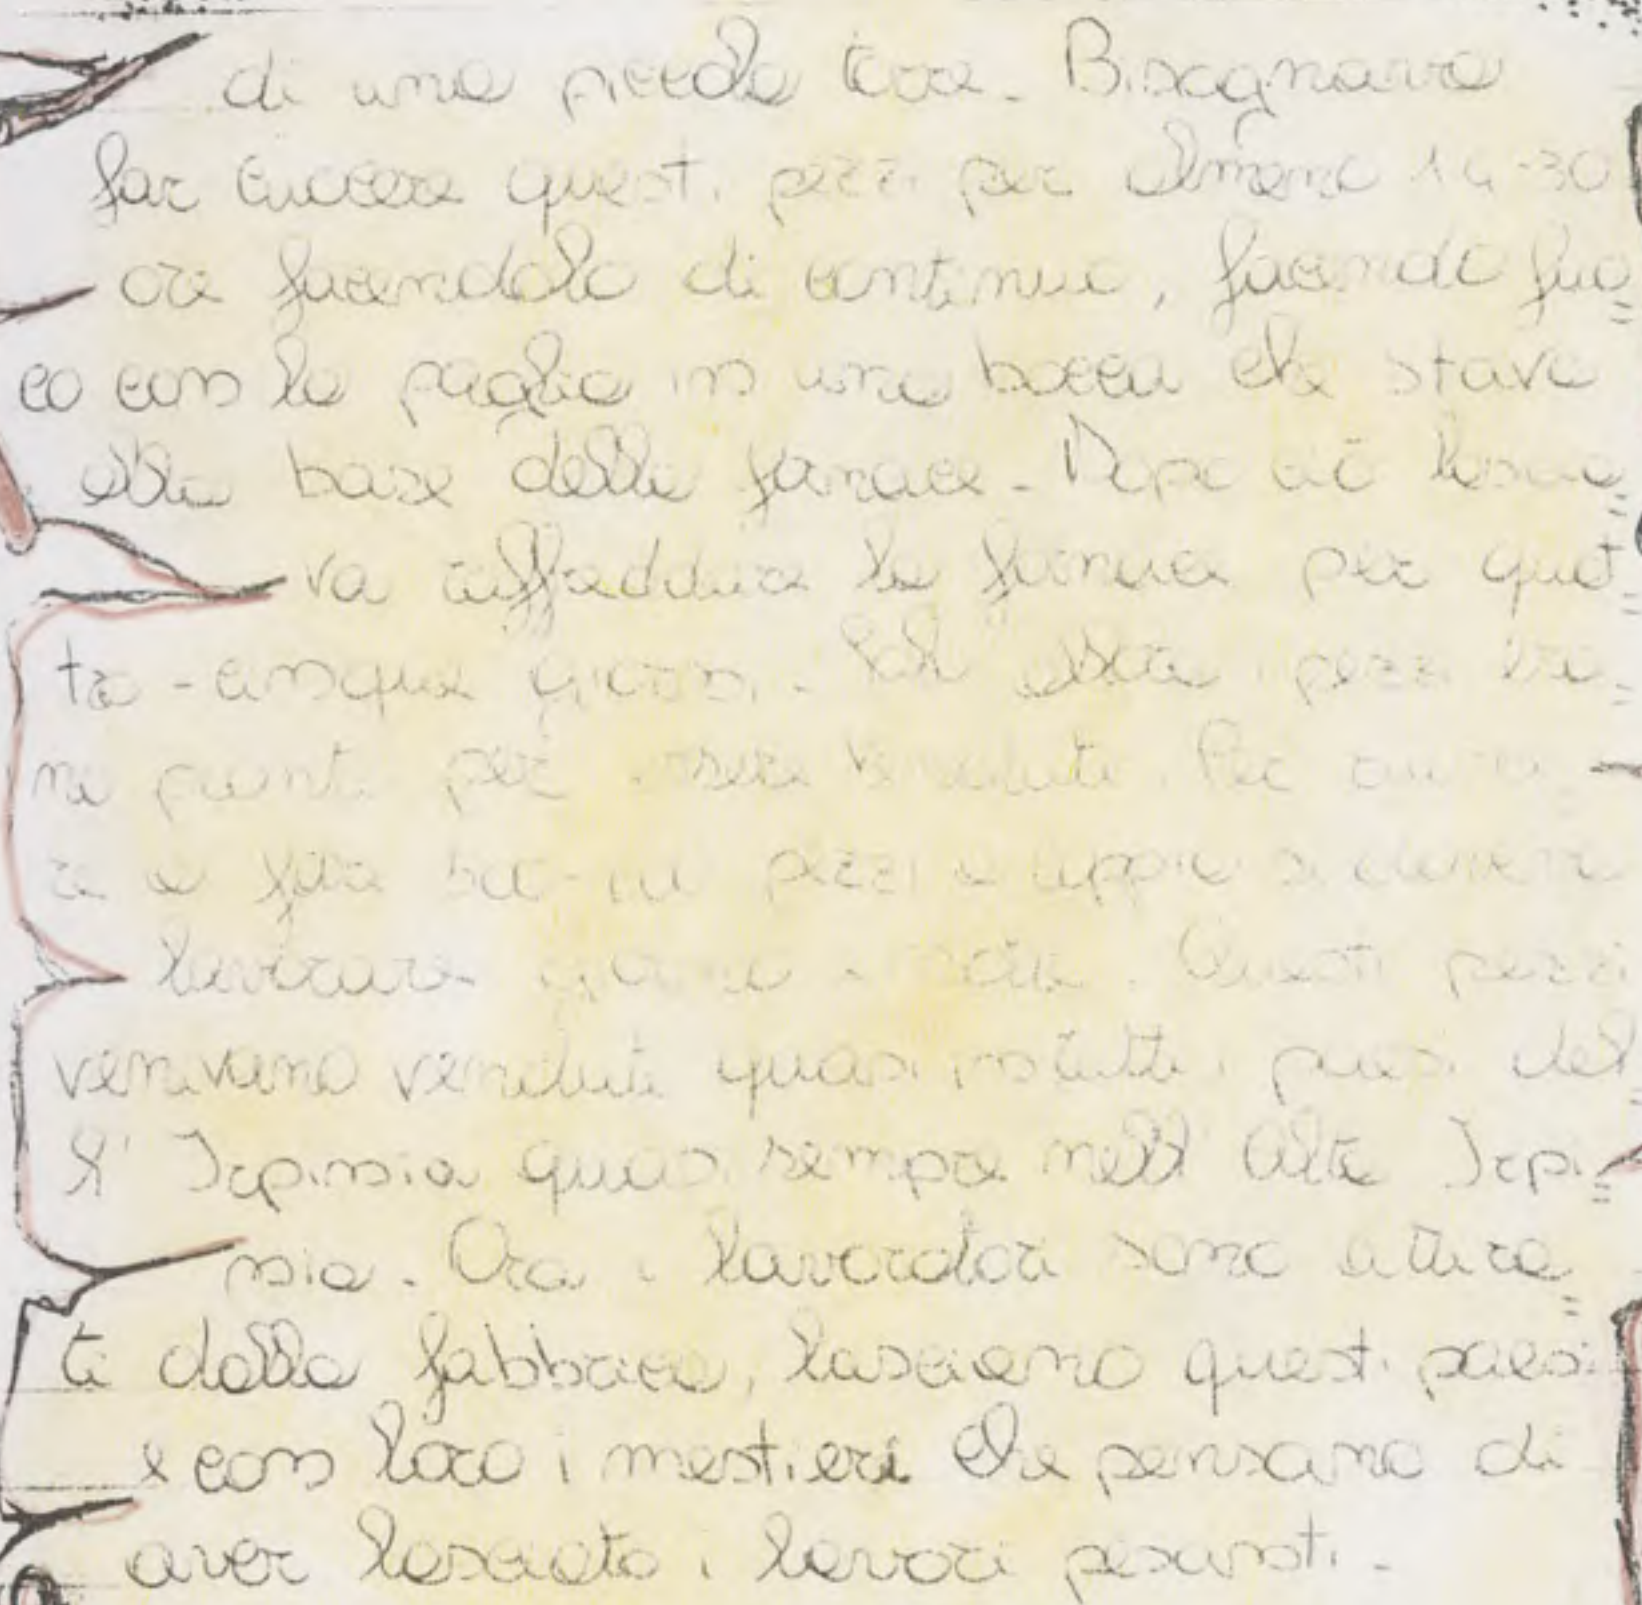 di una piccola torre. Bisognava
far cuocere questi pezzi per almeno 14-30
ore facendolo di continuo, facendo fuo=
co con la paglia in una bocca che stava
alla base della fornace. Dopo ciò lascia=
va raffreddare la fornace per quat=
tro-cinque giorni. i pezzi era=
no pronti per essere venduti. Per
re e fare pezzi a coppie si doveva
lavorare giorno e notte. Questi pezzi
venivano venduti quasi in tutti i paesi del=
l'Irpinia quasi sempre nell'Alta Irpi=
nia. Ora i lavoratori sono attira=
ti dalla fabbrica, lasciano questi paesi
e con loro i mestieri che pensano di
aver lasciato i lavori pesanti.